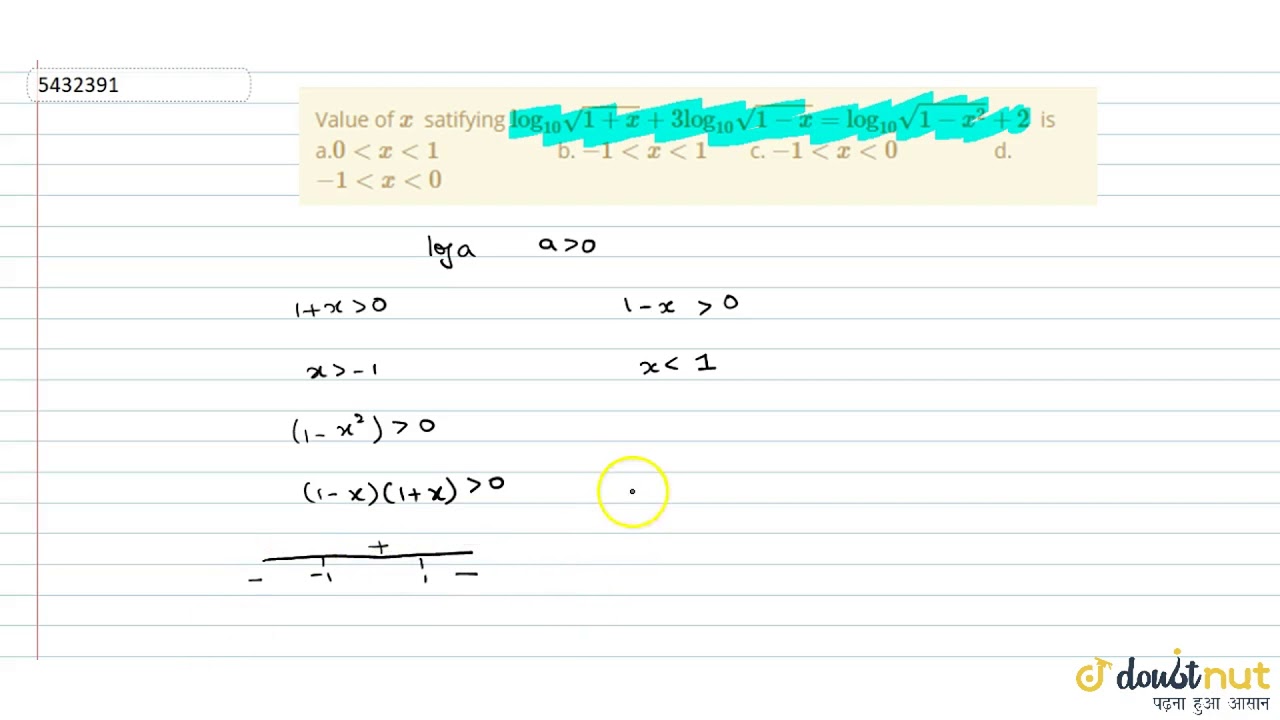 5432391
Value of x satifying log₁₀√(1 + x) + 3log₁₀√(1 − x) = log₁₀√(1 − x²) + 2 is
a.0 < x < 1 b. −1 < x < 1 c. −1 < x < 0 d.
−1 < x < 0
log a a > 0
1 + x > 0 1 − x > 0
x > −1 x < 1
(1 − x²) > 0
(1 − x)(1 + x) > 0
+
− −1 1 −
doubtnut
पढ़ना हुआ आसान